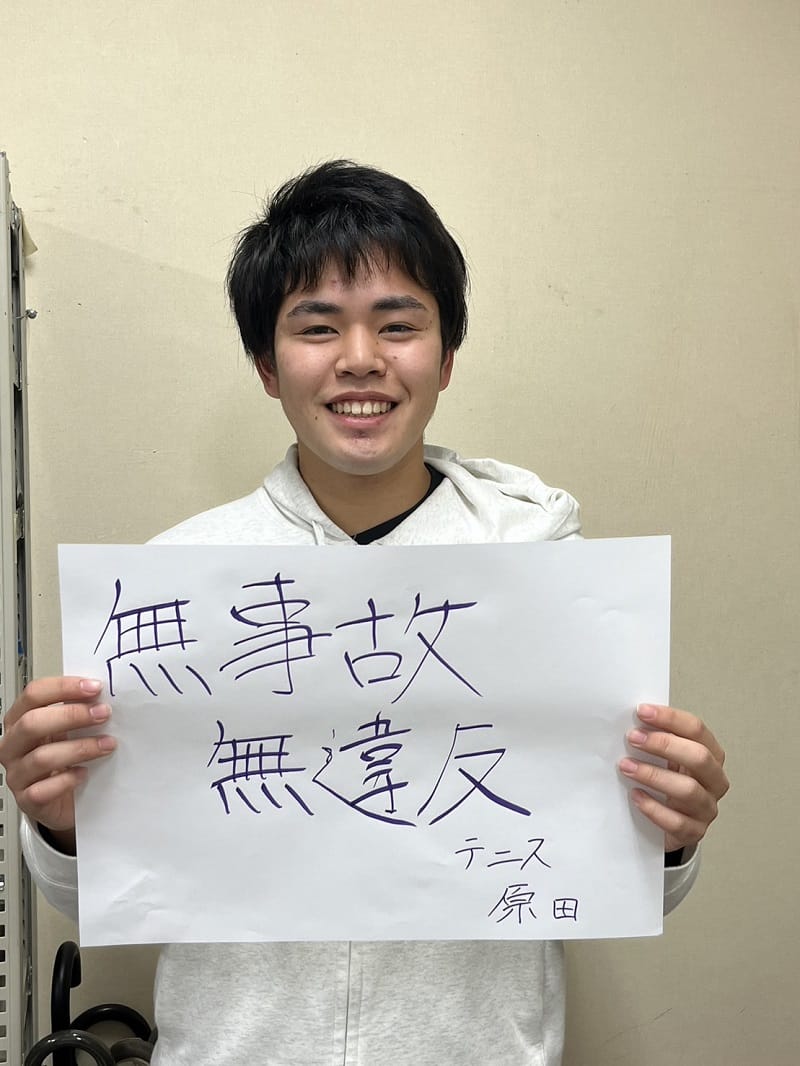 無事故
無違反
テニス
原田